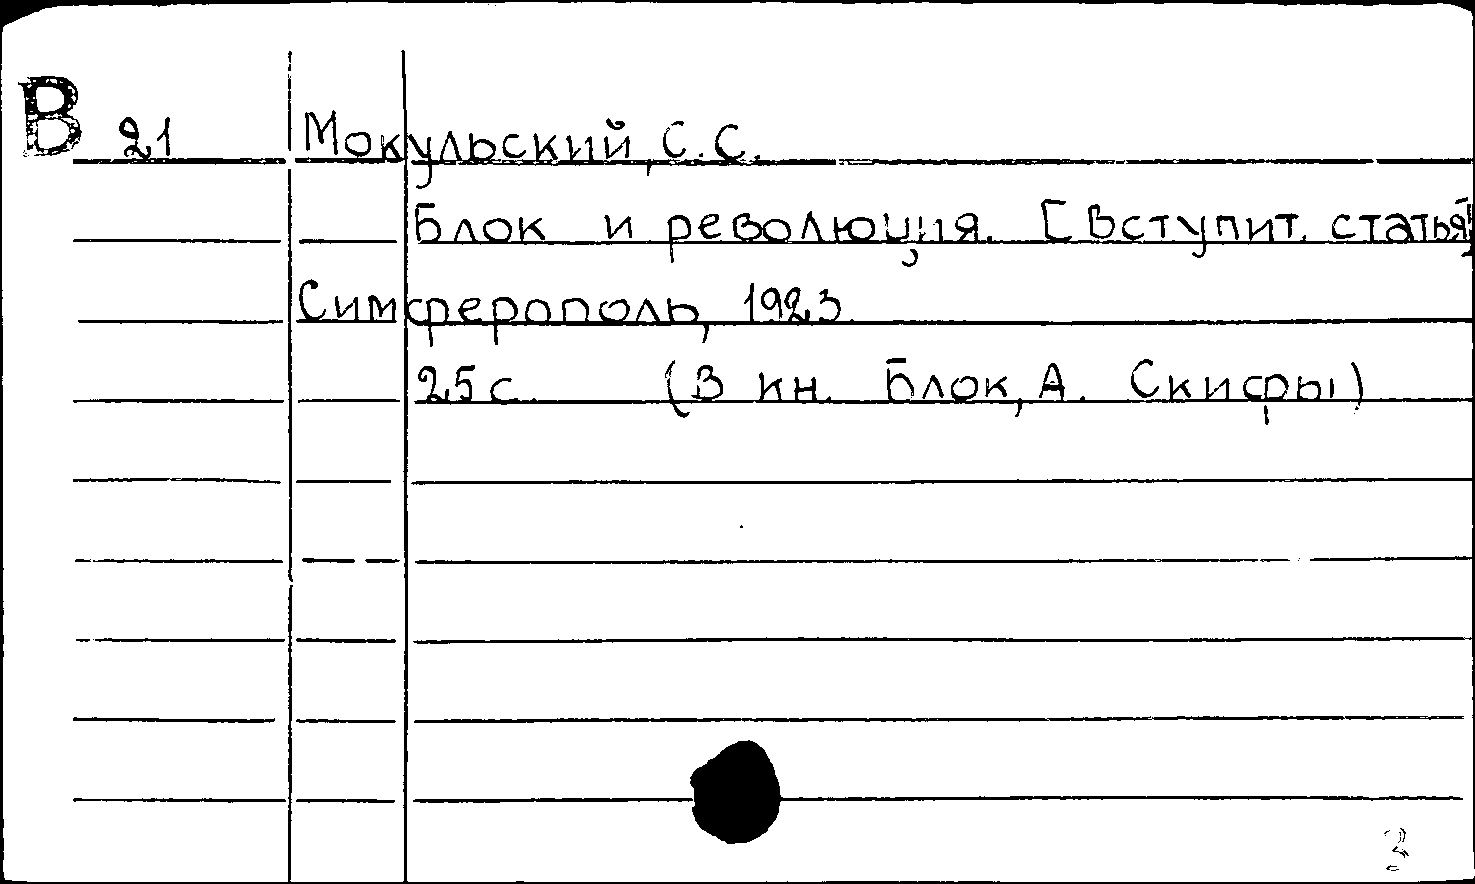 В 21 Мокульский, С.С.
Блок и революция. [Вступит. статья]
Симферополь, 1923.
25 с. (В кн. Блок, А. Скифы)